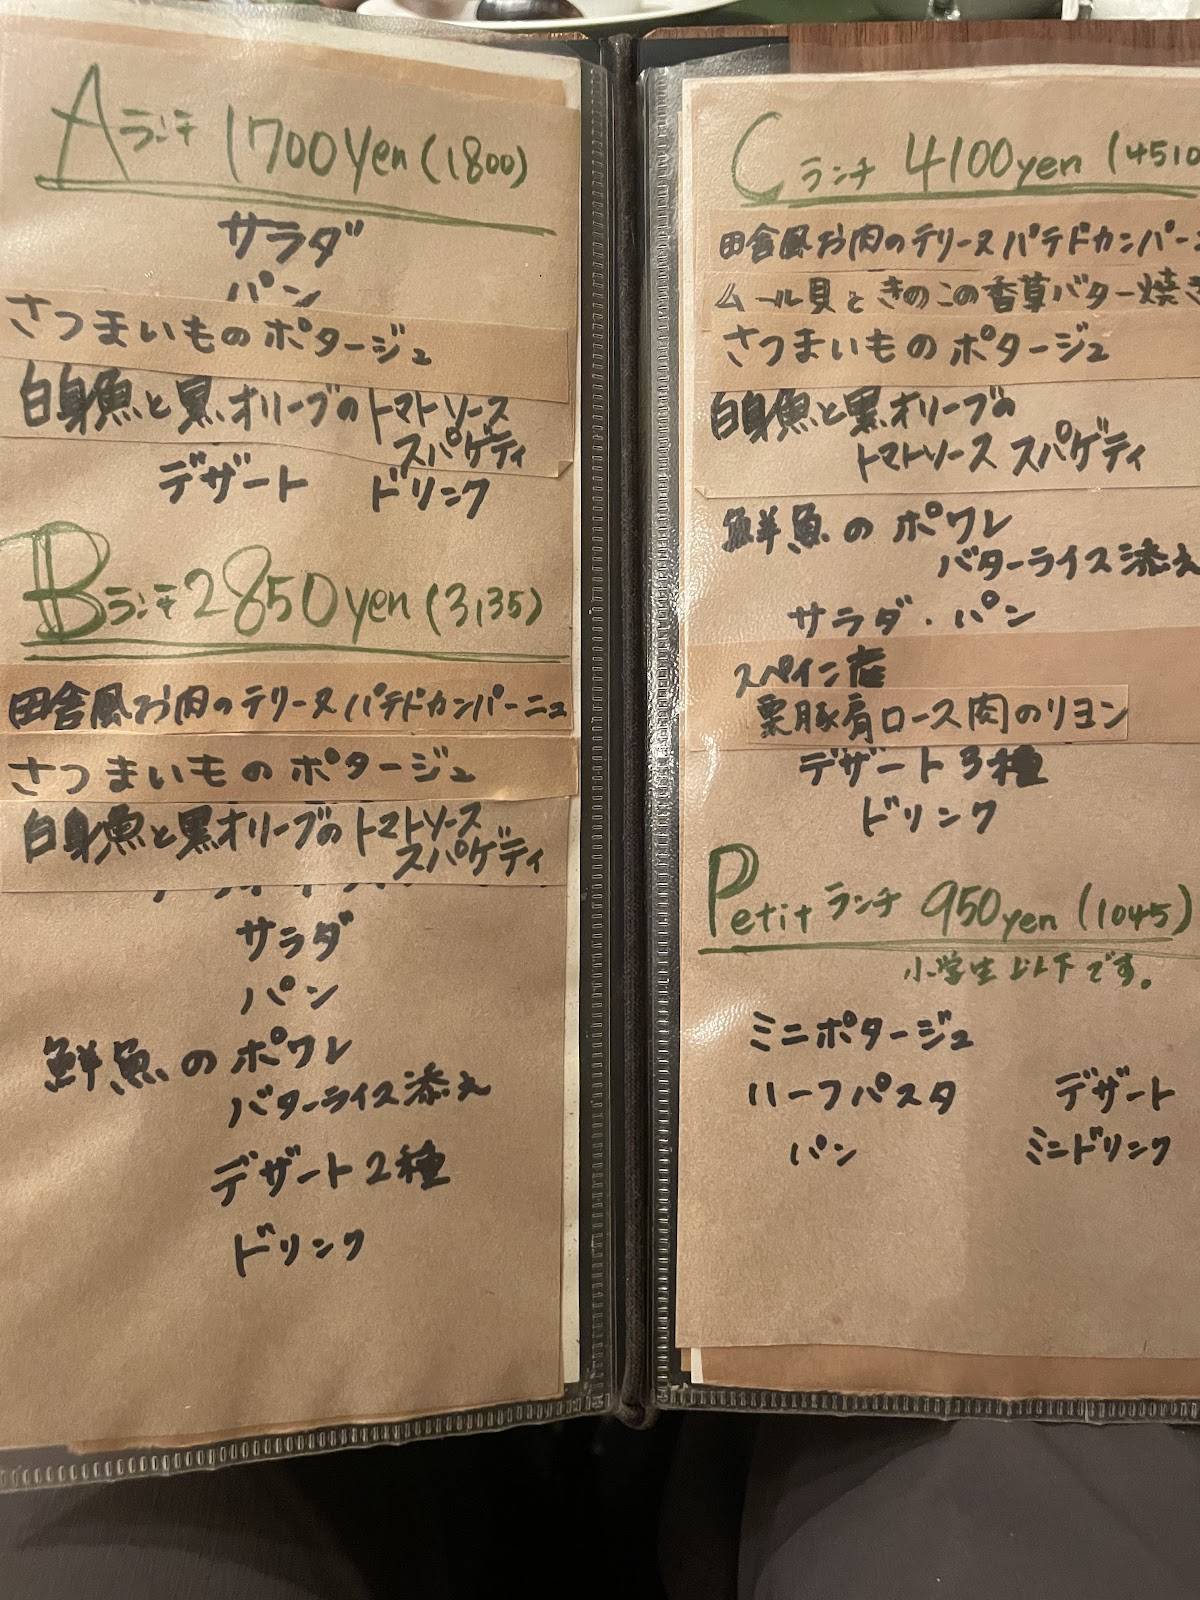 Aランチ 1700yen(1800)
サラダ
パン
さつまいものポタージュ
白身魚と黒オリーブのトマトソース
スパゲティ
デザート ドリンク
Bランチ 2850yen(3,135)
田舎風お肉のテリーヌパテドカンパーニュ
さつまいものポタージュ
白身魚と黒オリーブのトマトソース
スパゲティ
サラダ
パン
鮮魚のポワレ
バターライス添え
デザート2種
ドリンク
Cランチ 4100yen(4510
田舎風お肉のテリーヌパテドカンパーニ
ムール貝ときのこの香草バター焼き
さつまいものポタージュ
白身魚と黒オリーブの
トマトソース スパゲティ
鮮魚のポワレ
バターライス添え
サラダ・パン
スペイン産
栗豚肩ロース肉のリヨン
デザート3種
ドリンク
Petitランチ 950yen(1045)
小学生以下です。
ミニポタージュ
ハーフパスタ デザート
パン ミニドリンク